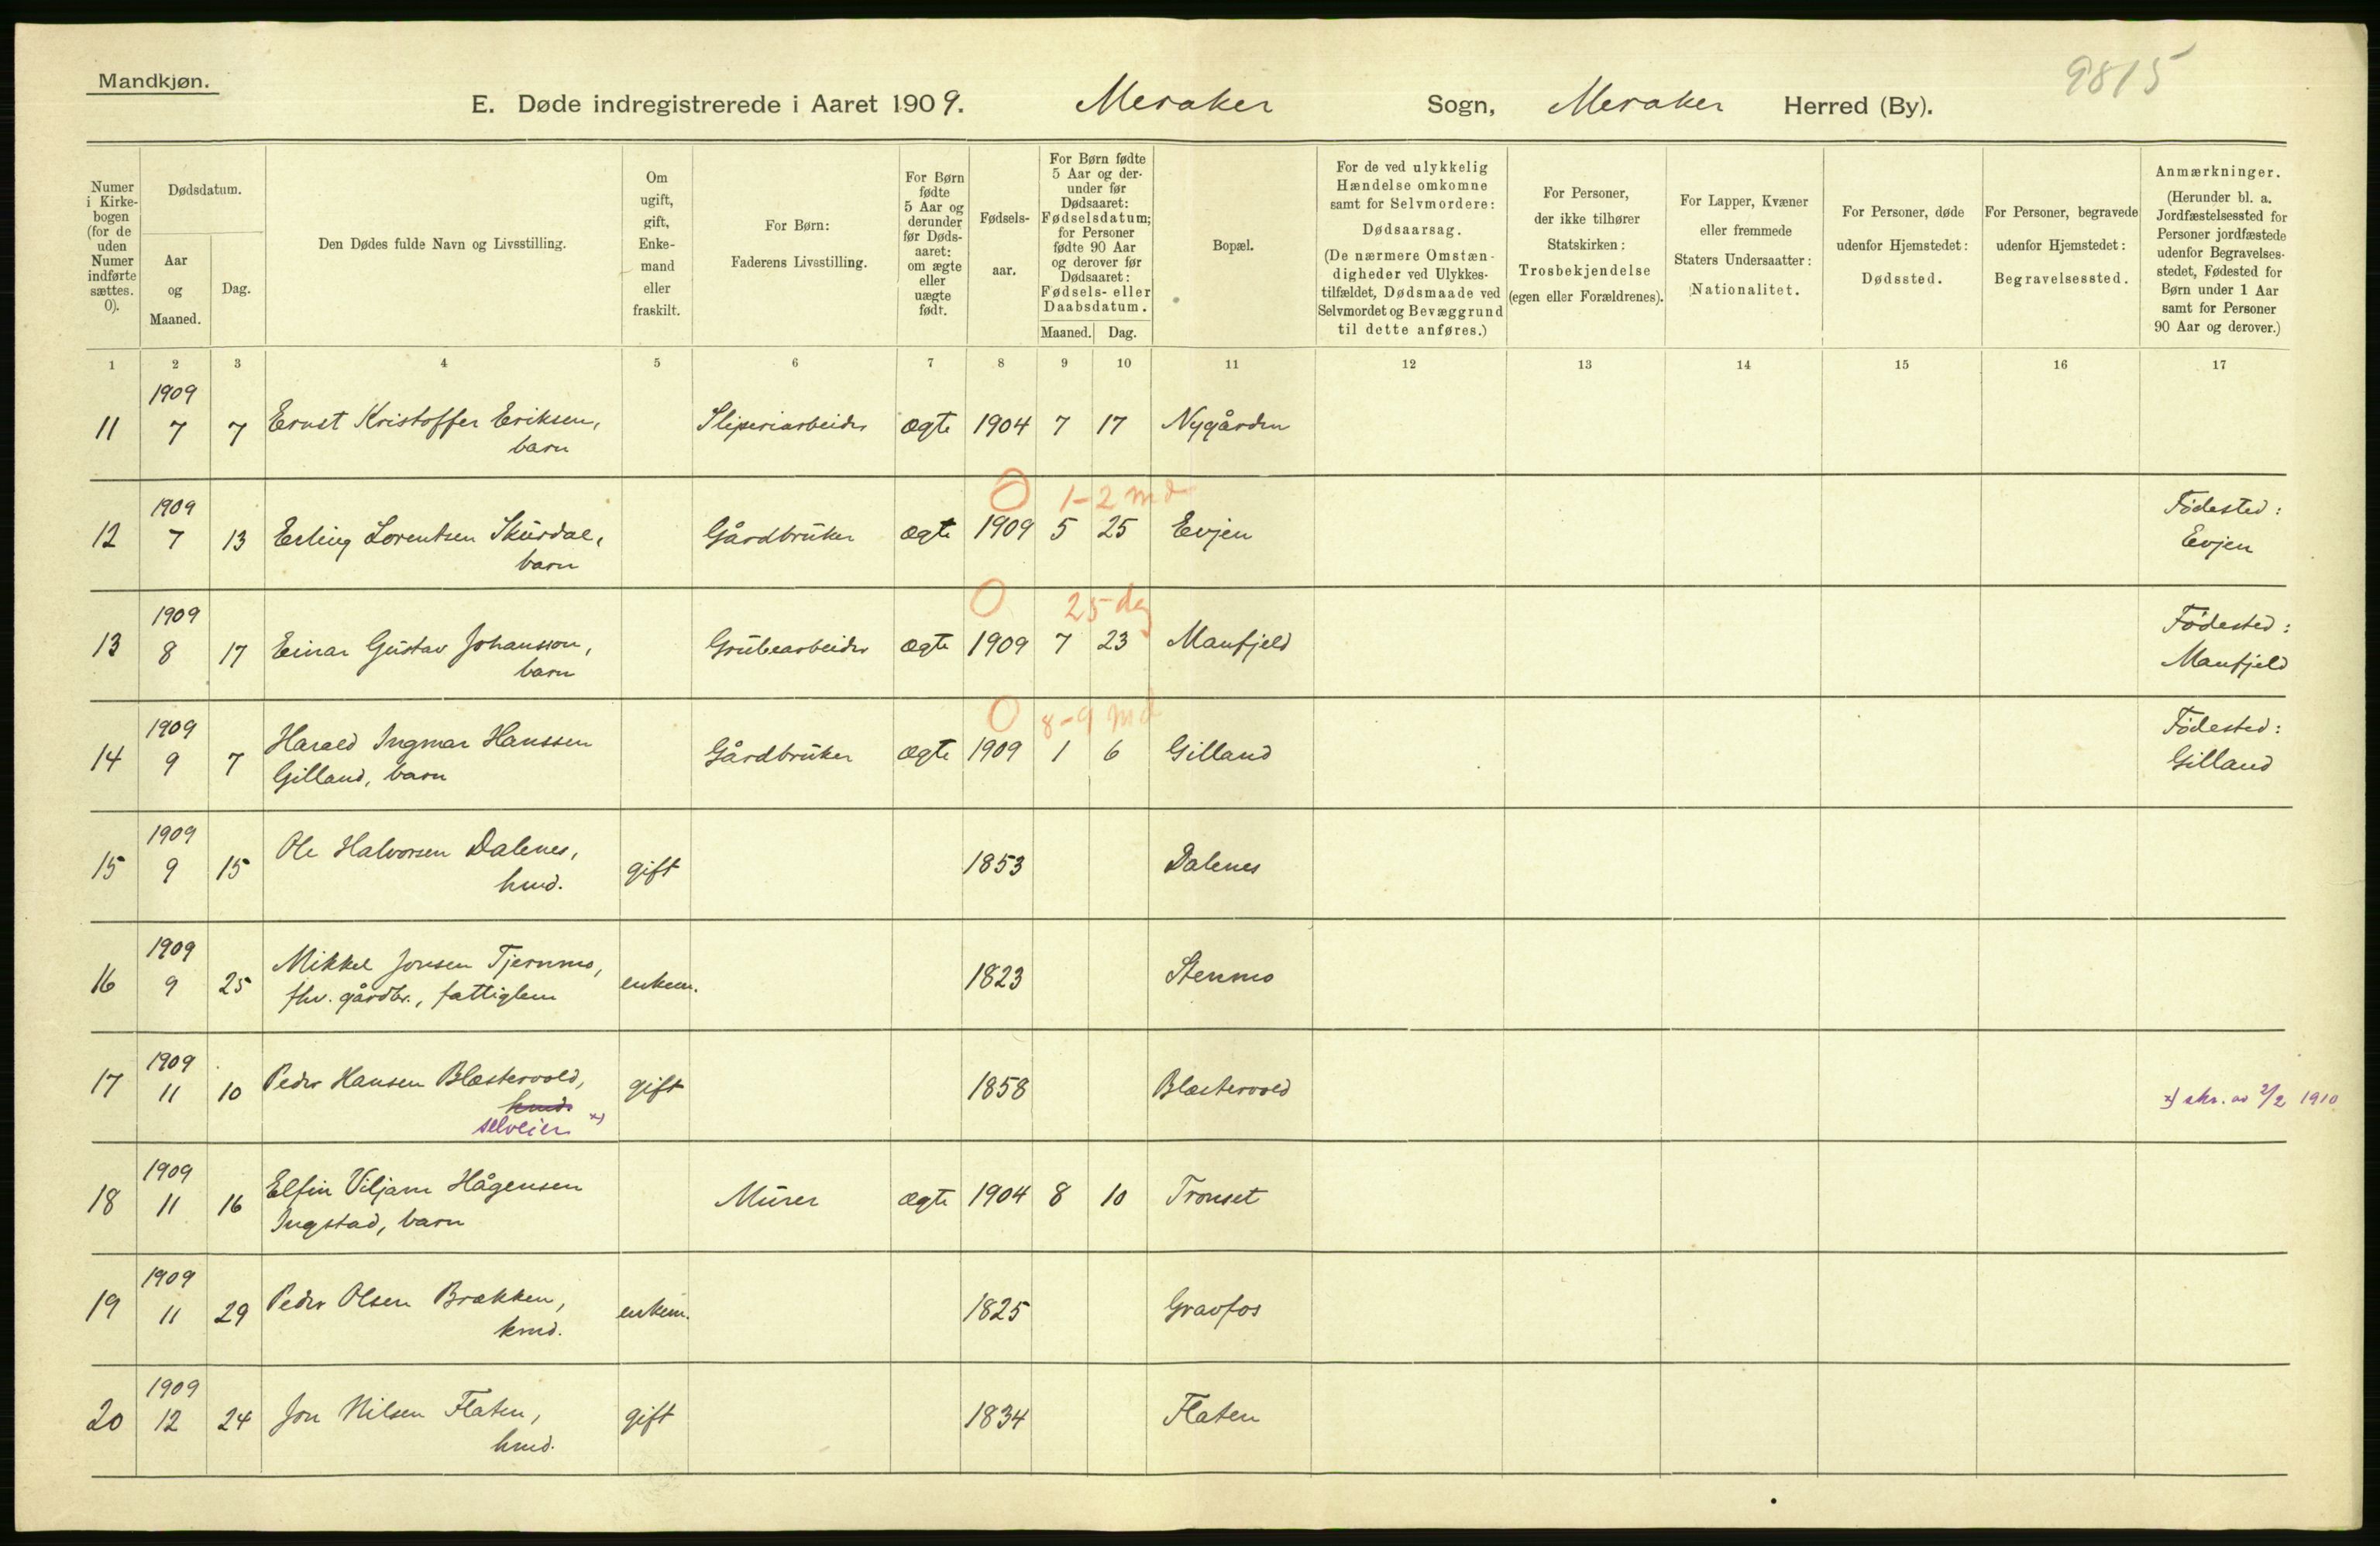 Mandkjøn.
9815
E. Døde indregistrerede i Aaret 1909. Meraker Sogn, Meraker Herred (By).
Numer i Kirkebogen (for de uden Numer indførte sættes. 0).
Dødsdatum.
Aar og Maaned.
Dag.
Den Dødes fulde Navn og Livsstilling.
Om ugift, gift, Enkemand eller fraskilt.
For Børn: Faderens Livsstilling.
For Børn fødte 5 Aar og derunder før Dødsaaret: om ægte eller uægte født.
Fødselsaar.
For Børn fødte 5 Aar og derunder før Dødsaaret: Fødselsdatum; for Personer fødte 90 Aar og derover før Dødsaaret: Fødsels- eller Daabsdatum.
Maaned. Dag.
Bopæl.
For de ved ulykkelig Hændelse omkomne samt for Selvmordere: Dødsaarsag. (De nærmere Omstændigheder ved Ulykkestilfældet, Dødsmaade ved Selvmordet og Bevæggrund til dette anføres.)
For Personer, der ikke tilhører Statskirken: Trosbekjendelse (egen eller Forældrenes).
For Lapper, Kvæner eller fremmede Staters Undersaatter: Nationalitet.
For Personer, døde udenfor Hjemstedet: Dødssted.
For Personer, begravede udenfor Hjemstedet: Begravelsessted.
Anmærkninger. (Herunder bl. a. Jordfæstelsessted for Personer jordfæstede udenfor Begravelsesstedet, Fødested for Børn under 1 Aar samt for Personer 90 Aar og derover.)
1 2 3 4 5 6 7 8 9 10 11 12 13 14 15 16 17
1909
11 7 7 Ernst Kristoffer Eriksen, Sliperiarbeider ægte 1904 7 17 Nygården
barn
0 1-2 md
1909 Fødested:
12 7 13 Erling Lorentsen Skurdal, Gårdbruker ægte 1909 5 25 Evjen Evjen
barn
0 25 dg
1909 Fødested:
13 8 17 Einar Gustav Johansson, Grubearbeider ægte 1909 7 23 Manfjeld Manfjeld
barn
0 8-9 md
1909 Harald Ingmar Hanssen Fødested:
14 9 7 Gilland, barn Gårdbruker ægte 1909 1 6 Gilland Gilland
1909
15 9 15 Ole Halvorsen Dalenes, gift 1853 Dalenes
hmd.
1909
16 9 25 Mikkel Jonsen Tjernmo, enkem. 1823 Stenmo
fhv. gårdbr., fattiglem
1909
17 11 10 Peder Hansen Blæstervold, gift 1858 Blæstervold
hmd.
selveier x) x) skr. av 2/2 1910
1909
18 11 16 Elfin Viljam Hågensen Murer ægte 1904 8 10 Tronset
Ingstad, barn
1909
19 11 29 Peder Olsen Brækken, enkem. 1825 Gravfos
kmd.
1909
20 12 24 Jon Nilsen Flaten, gift 1834 Flaten
hmd.